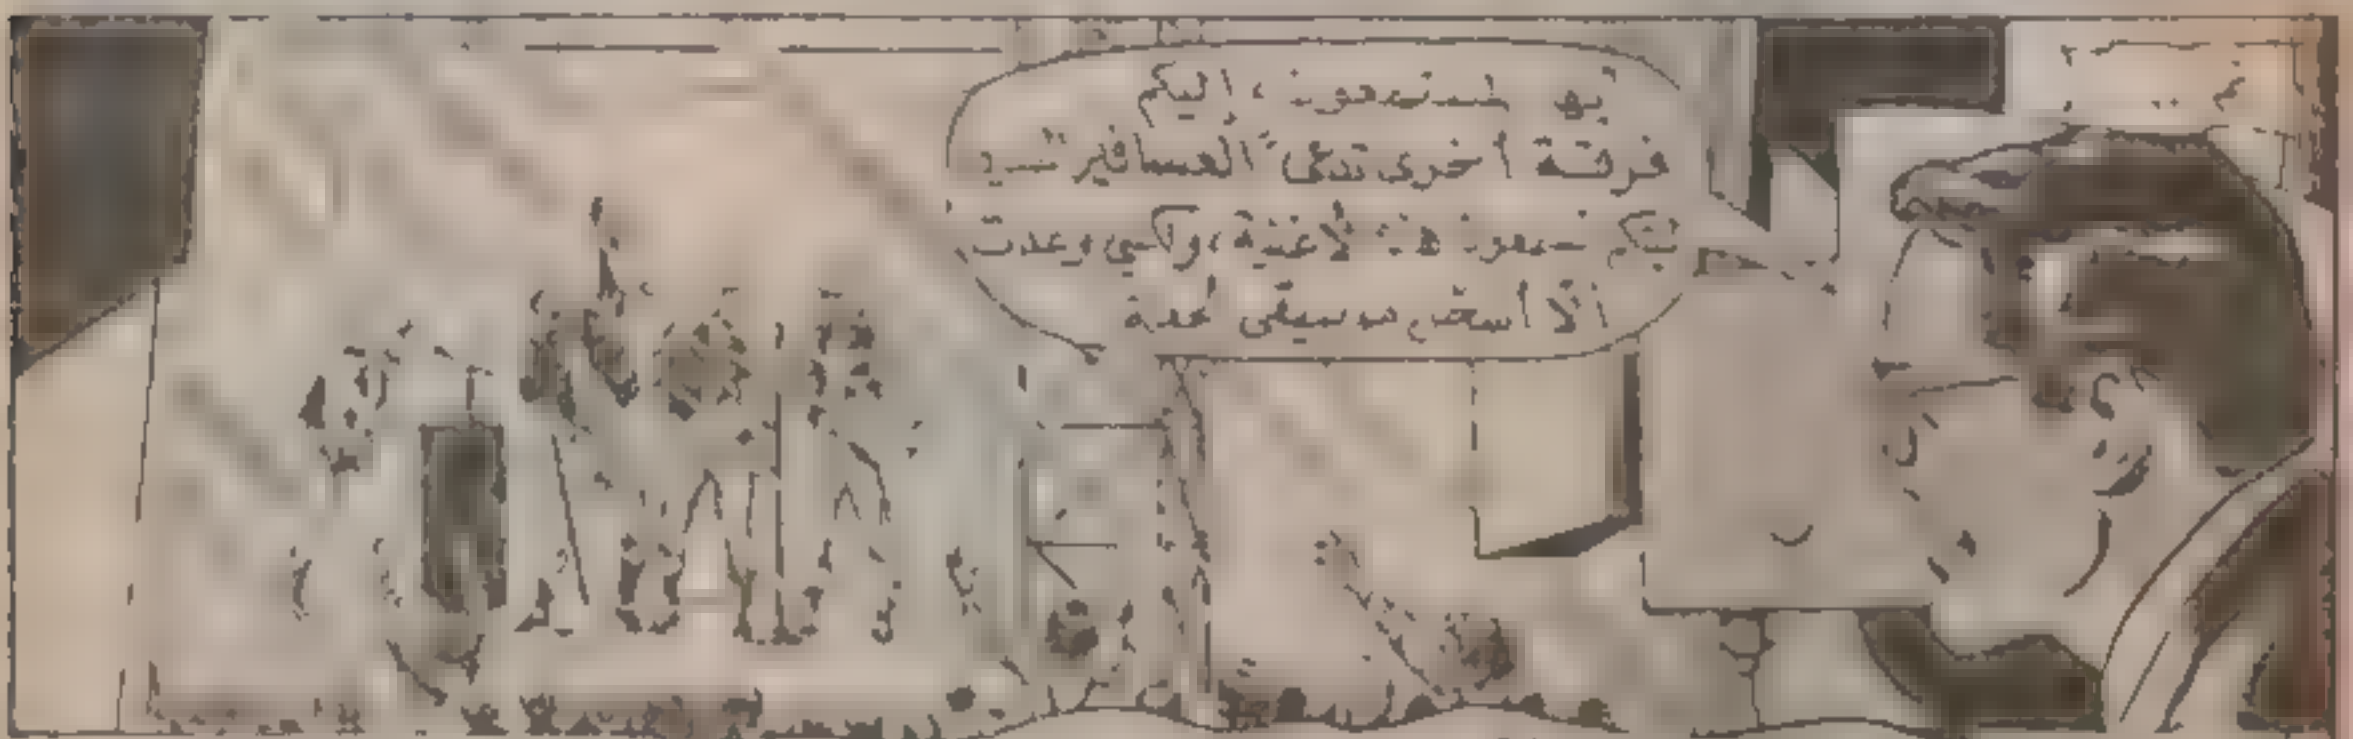 أيها المستمعون، إليكم
فرقة أخرى تدعى "العصافير"
تسمعون هذه الأغنية، ولكني وعدت
ألا أسمعكم موسيقى لمدة